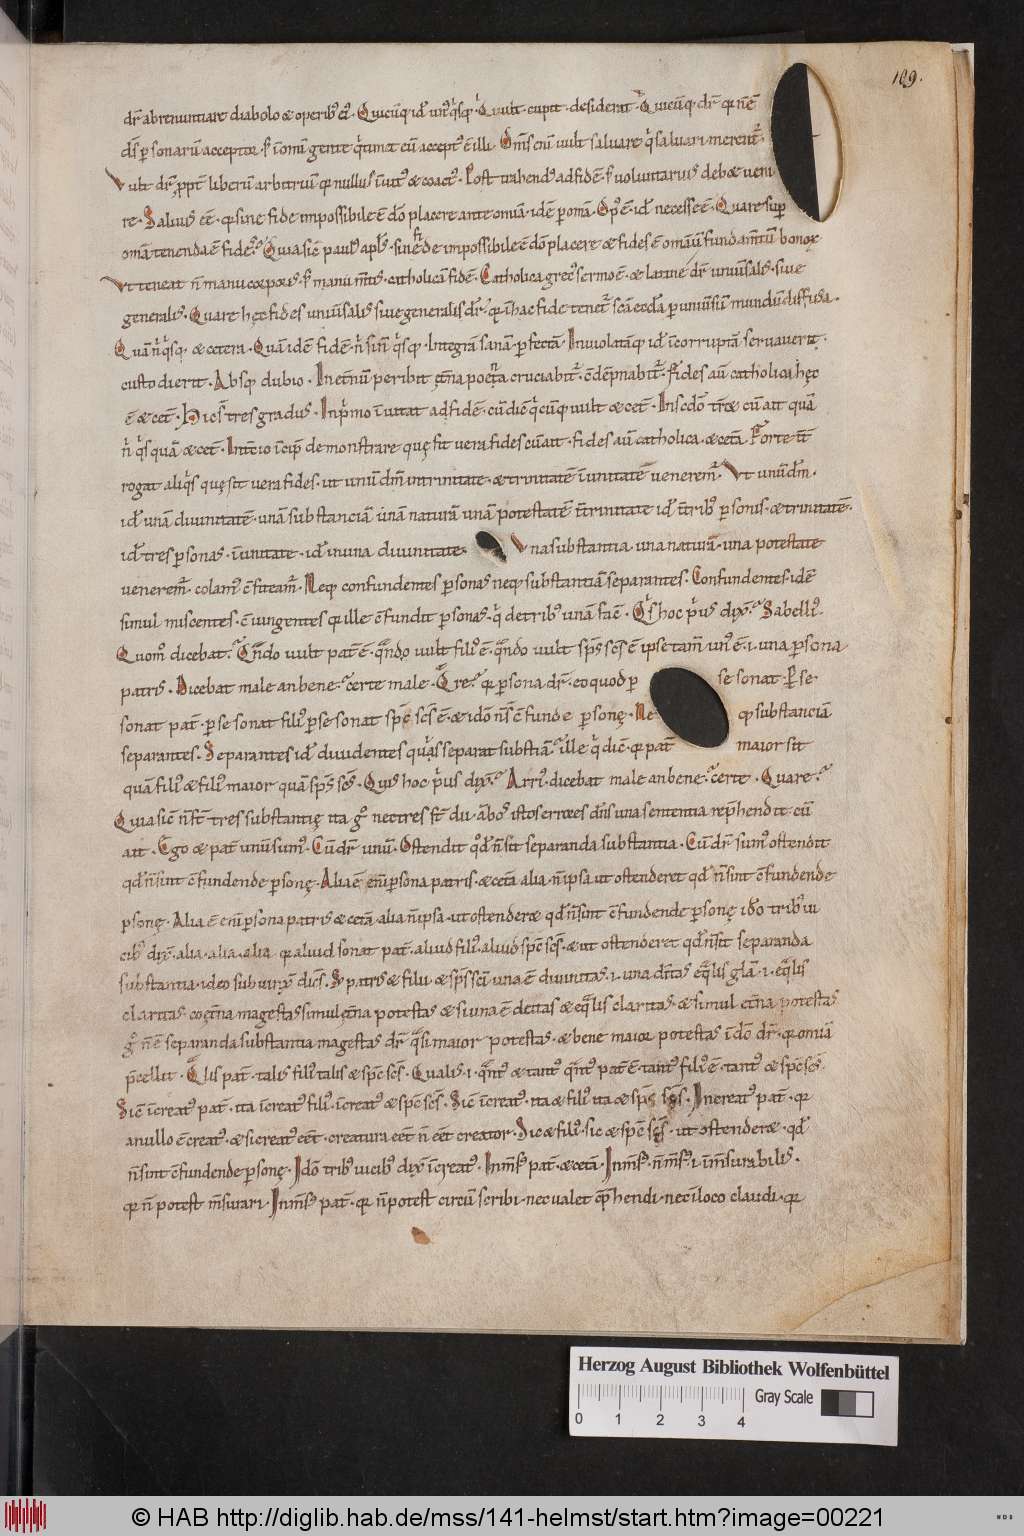 189.
dr̄ abrenuntiare diabolo & operib; ei'. Quicūq; id ē un'q'sq;. Q'uult. cupit. desiderat. Quicūq; dr̄ qr n̄ ē
ds̄ personarū acceptor. s; in om̄i gente q' timet eū accept' ē illi. Om̄s eni uult saluare q' saluari merent̄.
Vult dr̄ ꝓpt̄ liberū arbitriū qr nullus inuit' & coact'. Post trahend' ad fidē. s; uoluntarius deb& ueni
re. Saluus eē. qr sine fide impossibile ē dō placere ante omīa. idē ꝑ omīa. Op' ē. id ē necesse ē. Quare sup
omīa tenenda ē fides. Quia sic̄ paul' apl's. sine fide impossibile ē dō placere & fides ē omīū fundam̄tū bonoꝝ
Vt teneat n̄ manu corporis. s; manu m̄tis. catholicā fidē. Catholica grec' sermo ē. & latine dr̄ uniu'salis. siue
generalis. Quare hęc fides uniu'salis siue generalis dr̄. qr in hac fide tenet̄ sc̄a eccl̄a ꝑ uniu'sū mundū diffusa.
Quā n' q'sq;. & cetera. Quā idē fidē. n' sin̄ q'sq;. Integrā sanā. ꝑfectā. Inuiolatāq; id ē incorruptā seruauerit.
custodierit. Absq; dubio. In et'nū peribit
ē & cet̄. Hic s̄ tres gradus. In p'mo inuitat ad fidē. cū dic̄ q'cūq; uult & cet̄. In sc̄do cū ait quā
n' q'squā & cet̄. Intētio incip̄ demonstrare quę sit uera fides cū ait. fides aū catholica. & cetā. Forte
rogat aliq's quę sit uera fides. ut unū dm̄ in trinitate. & trinitatē in unitatē uenerem'. Vt unū dm̄.
id ē unā diuinitatē. unā substanciā unā naturā unā potestatē in trinitate id ē in trib' personis. & trinitatē.
id ē tres personas. in unitate. id ē in una diuinitate. Vna substantia. una natura. una potestate
uenerem'. colam' 9fiteam'. Neq; confundentes personas neq; substantiā separantes. Confundentes. idē
simul miscentes. 9iungentes qr ille 9fundit personas. q' de trib' unā fac̄. Q's hoc p'us dix̄. Sabelli'.
Quom' dicebat. Q̄ndo uult pat̄ ē. q̄ndo uult fili' ē. q̄ndo uult sp̄s sc̄s ē ipse tam̄ un' ē. i. una persona
patris. Dicebat male an bene. certe male. Quare. qr persona dr̄. eo quod p se sonat. P se
sonat pat̄. per se sonat fili' per se sonat sp̄c sc̄s ē. & idō n̄ s̄ 9funde personę. Ne q; substanciā
separantes. Separantes id ē diuidentes quas separat substīā. ille q' dic̄ qr pat̄ maior sit
quā fili' & fili' maior quā sp̄s sc̄s. Quis hoc p'us dix̄. Arri'. dicebat male an bene. certe. Quare.
Quia sic̄ n̄ s̄t tres substantię ita g° nec tres s̄t dii. abos istos errores dn̄s una sententia rep'hendit cū
ait. Ego & pat̄ unū sum'. Cū dr̄ unū. Ostendit qd n̄ sit separanda substantia. Cū dr̄ sum' ostendit
qd n̄ sint 9fundende personę. Alia ē eni persona patris. & cetā alia. n̄ ipsa ut ostenderet qd n̄ sint 9fundende
personę. Alia ē eni persona patris & cetā. alia n̄ ipsa. ut ostender& qd n̄ sint 9fundende personę idō trib' ui
cib' dix̄. alia. alia. alia qr aliud sonat pat̄. aliud fili'. aliud sp̄c sc̄s. & ut ostenderet qd n̄ sit separanda
substantia. ideo subiunx̄ dic̄s. S; patris & filii & sp̄s sc̄i una ē diuinitas. i. una deitas eq̄lis glā. i. eq̄lis
claritas. coęt'na magestas simul ęt'na potestas & si una ē deitas & eq̄lis claritas. & simul et'na potestas
g° n̄ ē separanda substantia magestas dr̄ q̄si maior potestas. & bene maior potestas in dō dr̄. qr omīa
p'cellit. Q̄lis pat̄. talis fili' talis & sp̄c sc̄s. Qualis. i. q̄nt' & tant' q̄nt' pat̄ ē. tant' fili' ē. tant' & sp̄c sc̄s.
Sic̄ increat' pat̄. ita increat' fili'. increat' & sp̄c sc̄s. Sic̄ increat'. ita & fili' ita & sp̄s sc̄s. Increat' pat̄. qr
a nullo 9creat'. & si creat' eēt. creatura eēt n̄ eēt creator. Sic & fili'. sic & sp̄c sc̄s. ut ostender& qd
n̄ sint 9fundende personę. Idō trib' uicib' dix̄ increat'. Inm̄s' pat̄. & cetā. Inm̄s'. n̄ m̄s'. i. inm̄surabilis.
qr n̄ potest m̄surari. Inm̄s' pat̄. qr n̄ potest circūscribi. nec ualet 9p'hendi. nec in loco claudi. qr
Herzog August Bibliothek Wolfenbüttel
Gray Scale
0 1 2 3 4
© HAB http://diglib.hab.de/mss/141-helmst/start.htm?image=00221